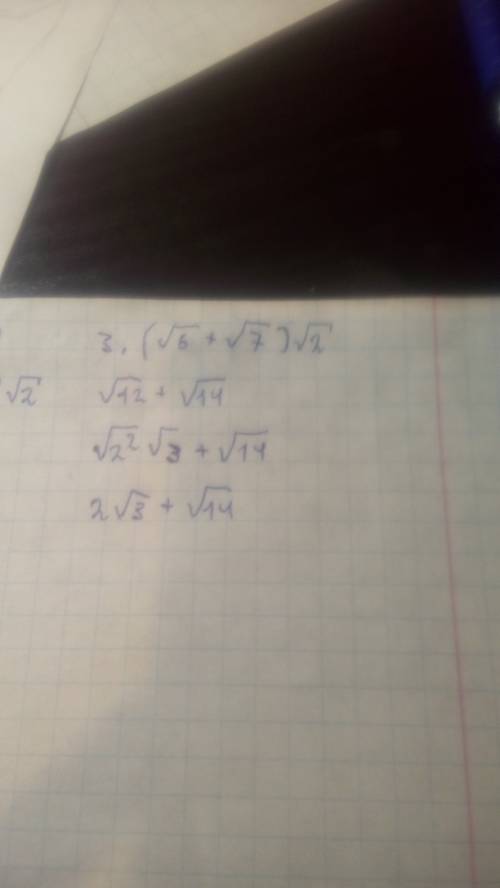 3. (√6 + √7)√2
√2 √12 + √14
√2² √3 + √14
2√3 + √14